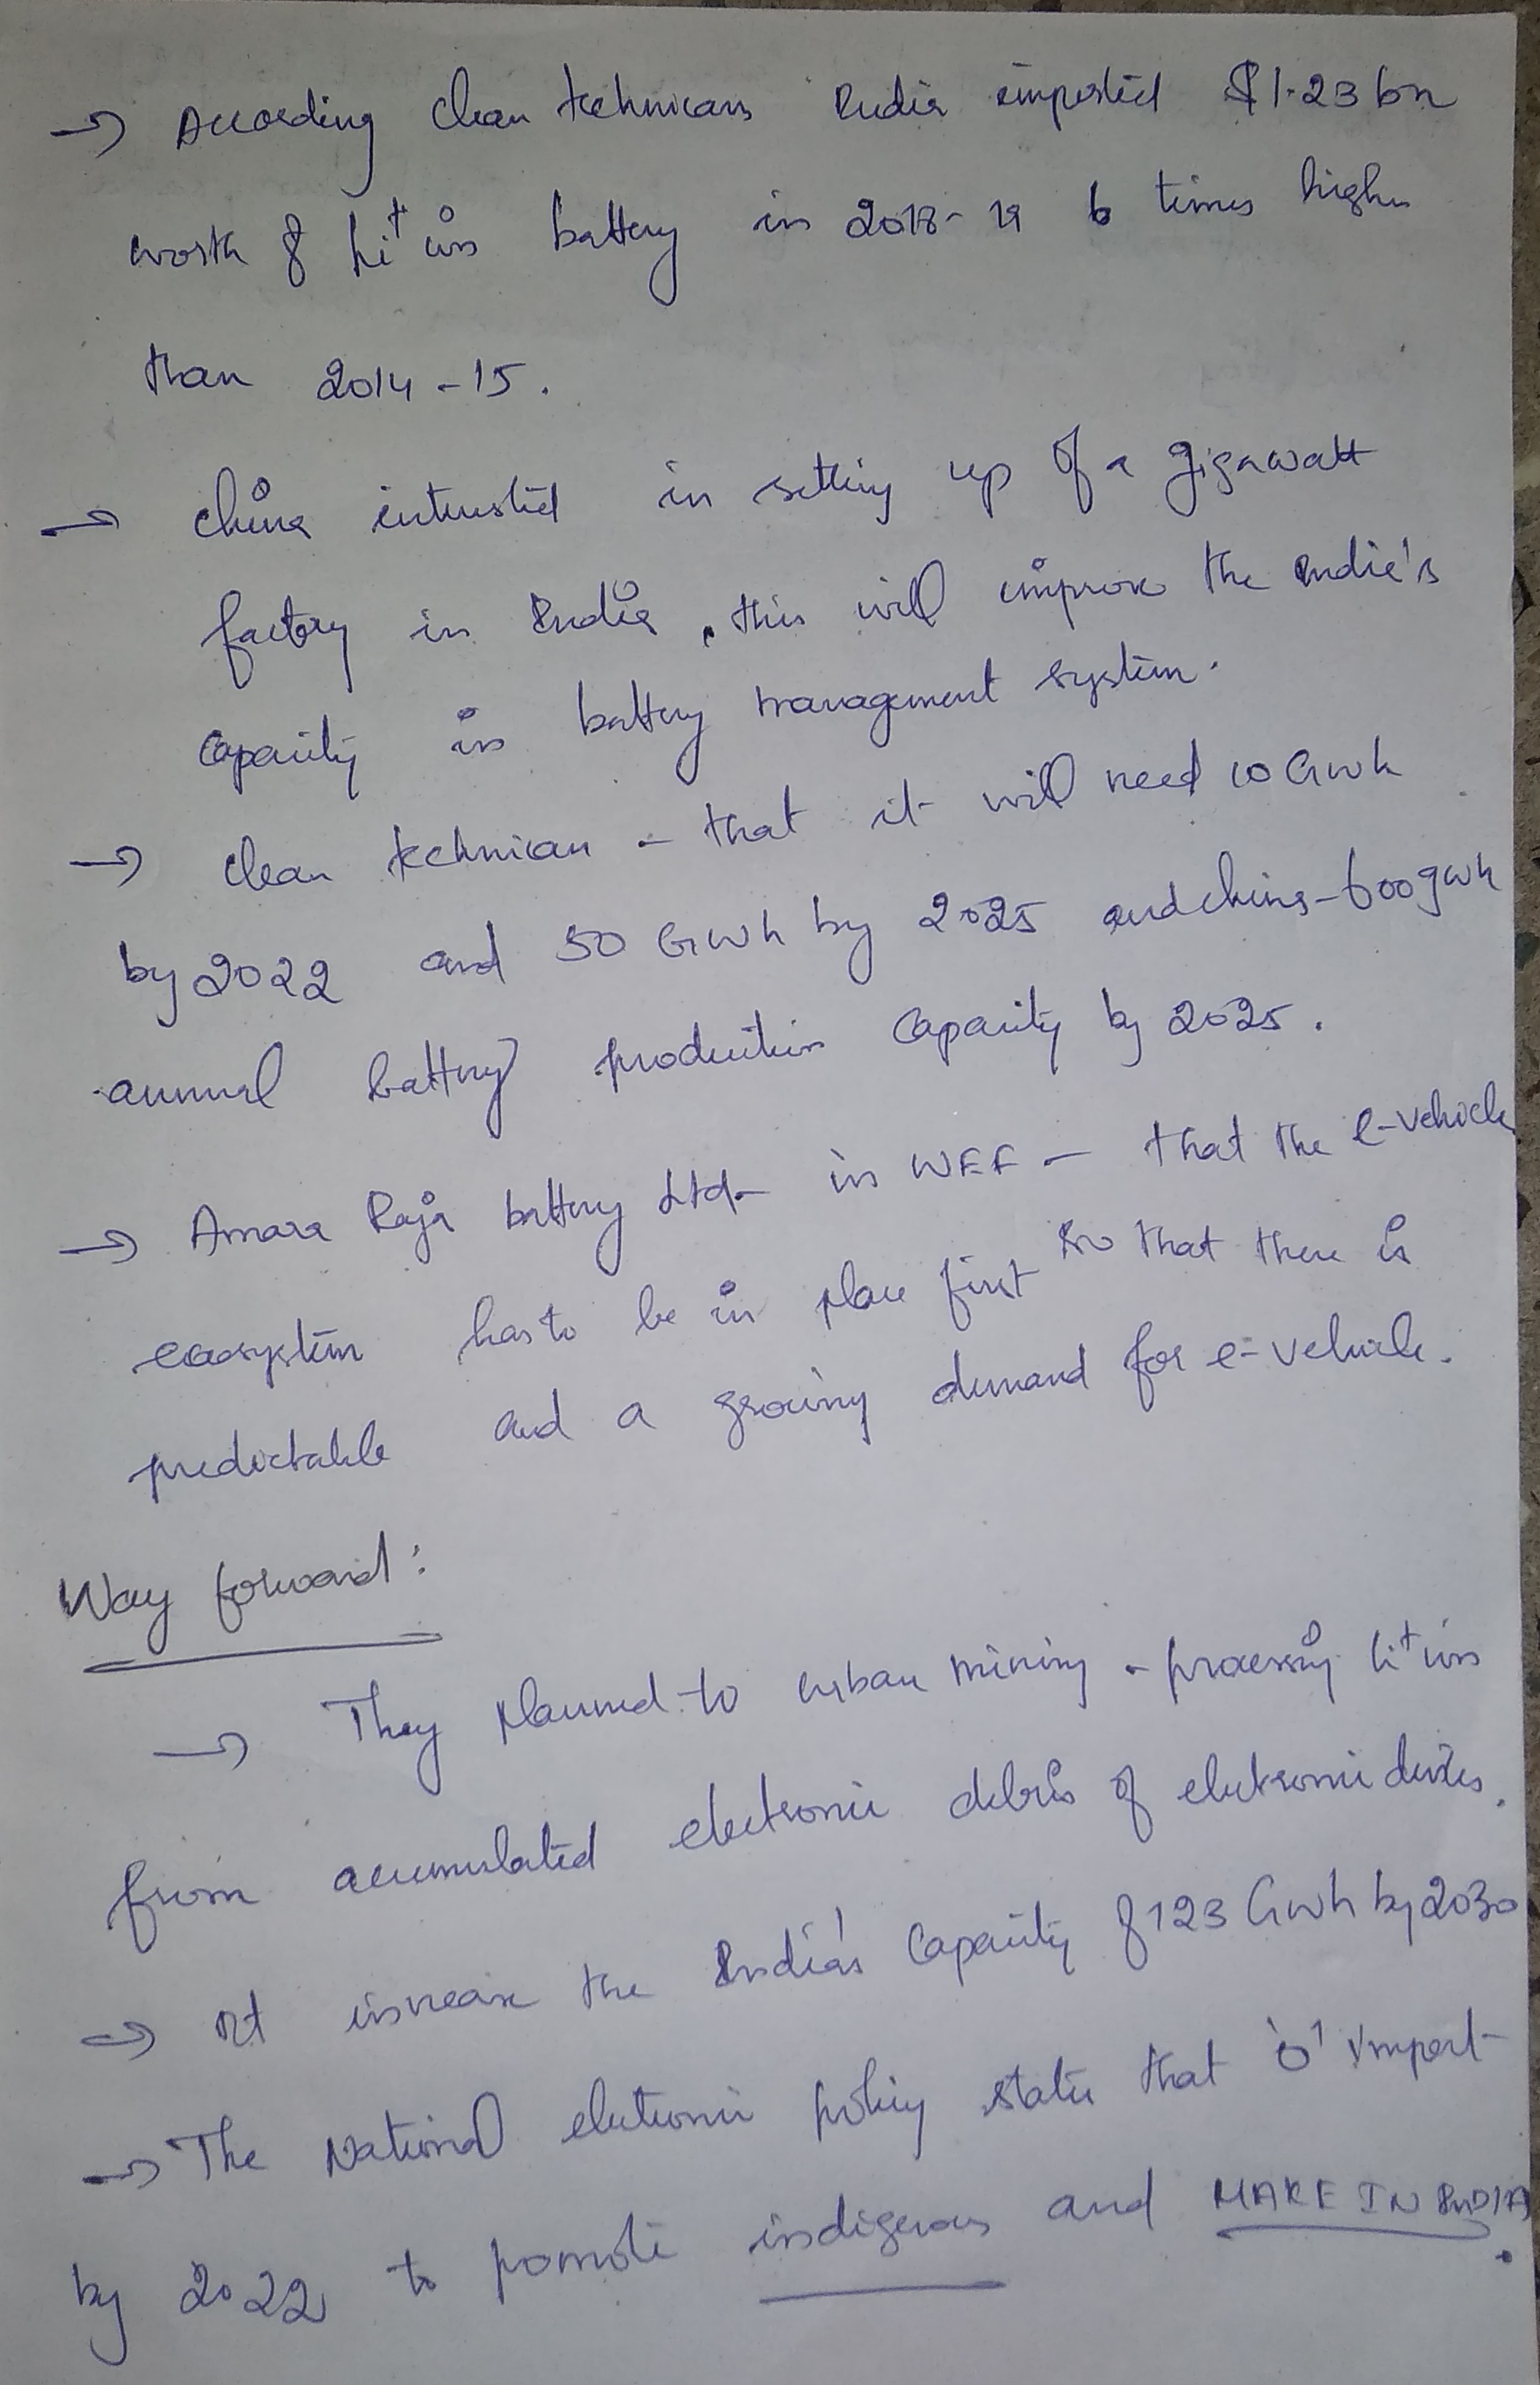 → According Clean technicans India imported $1.23 bn
worth of Li⁺ ion battery in 2018-19 6 times higher
than 2014-15.
→ China interested in setting up of a gigawatt
factory in India, this will improve the India's
capacity in battery management system.
→ Clean technican - that it will need 10 GWh
by 2022 and 50 GWh by 2025 and china-600 gwh
annual battery production capacity by 2025.
→ Amara Raja battery Ltd - in WEF - that the e-vehicle
ecosystem has to be in place first so that there is
predictable and a growing demand for e-vehicle.
Way forward:
→ They planned to urban mining - processing Li⁺ ion
from accumulated electronic debris of electronic devices.
→ It increase the India's capacity of 123 GWh by 2030
→ The National electronic policy states that '0' import
by 2022 to promote indigenous and MAKE IN INDIA.